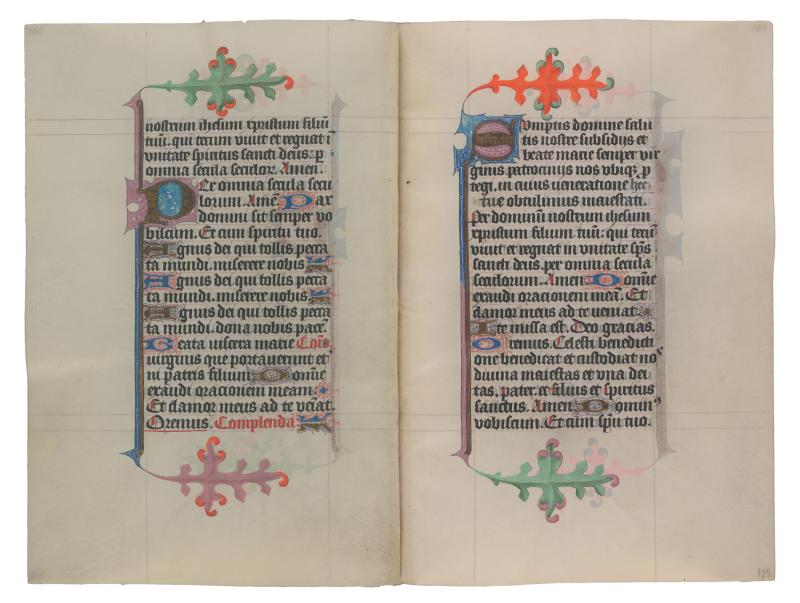 nostrum ihesum xpristum filiū
tuū. qui tecum viuit et regnat ī
vnitate spiritus sancti deus: p
omnia secula seculor. Amen.
Per omnia secula secu
lorum. Amē. Pax
domini sit semper vo
biscum. Et cum spiritu tuo.
Agnus dei qui tollis pecca
ta mundi. miserere nobis
Agnus dei qui tollis pecca
ta mundi. miserere nobis
Agnus dei qui tollis pecca
ta mundi. dona nobis pacē.
Beata viscera marie Coīs
virginis que portauerunt et
ni patris filium Domīe
exaudi oracionem meam.
Et clamor meus ad te veīat.
Oremus. Complenda.
161
Sumptis domine salu
tis nostre subsidijs et
beate marie semper vir
ginis patrocinijs nos vbiqꝫ p
tegi. in cuius veneratione hec
tue obtulimus maiestati.
Per dominū nostrum ihesum
xpristum filium tuū: qui tecū
viuit et regnat in vnitate spūs
sancti deus. per omnia secula
seculorum. Amen Domīe
exaudi oracionem meā. Et
clamor meus ad te veniat
Ite missa est. Deo gracias.
Oremus. Celesti benedicti
one benedicat et custodiat no
diuina maiestas et vna dei
tas. pater. et filius et spiritus
sanctus. Amen Domin
vobiscum. Et cum spū tuo.
175